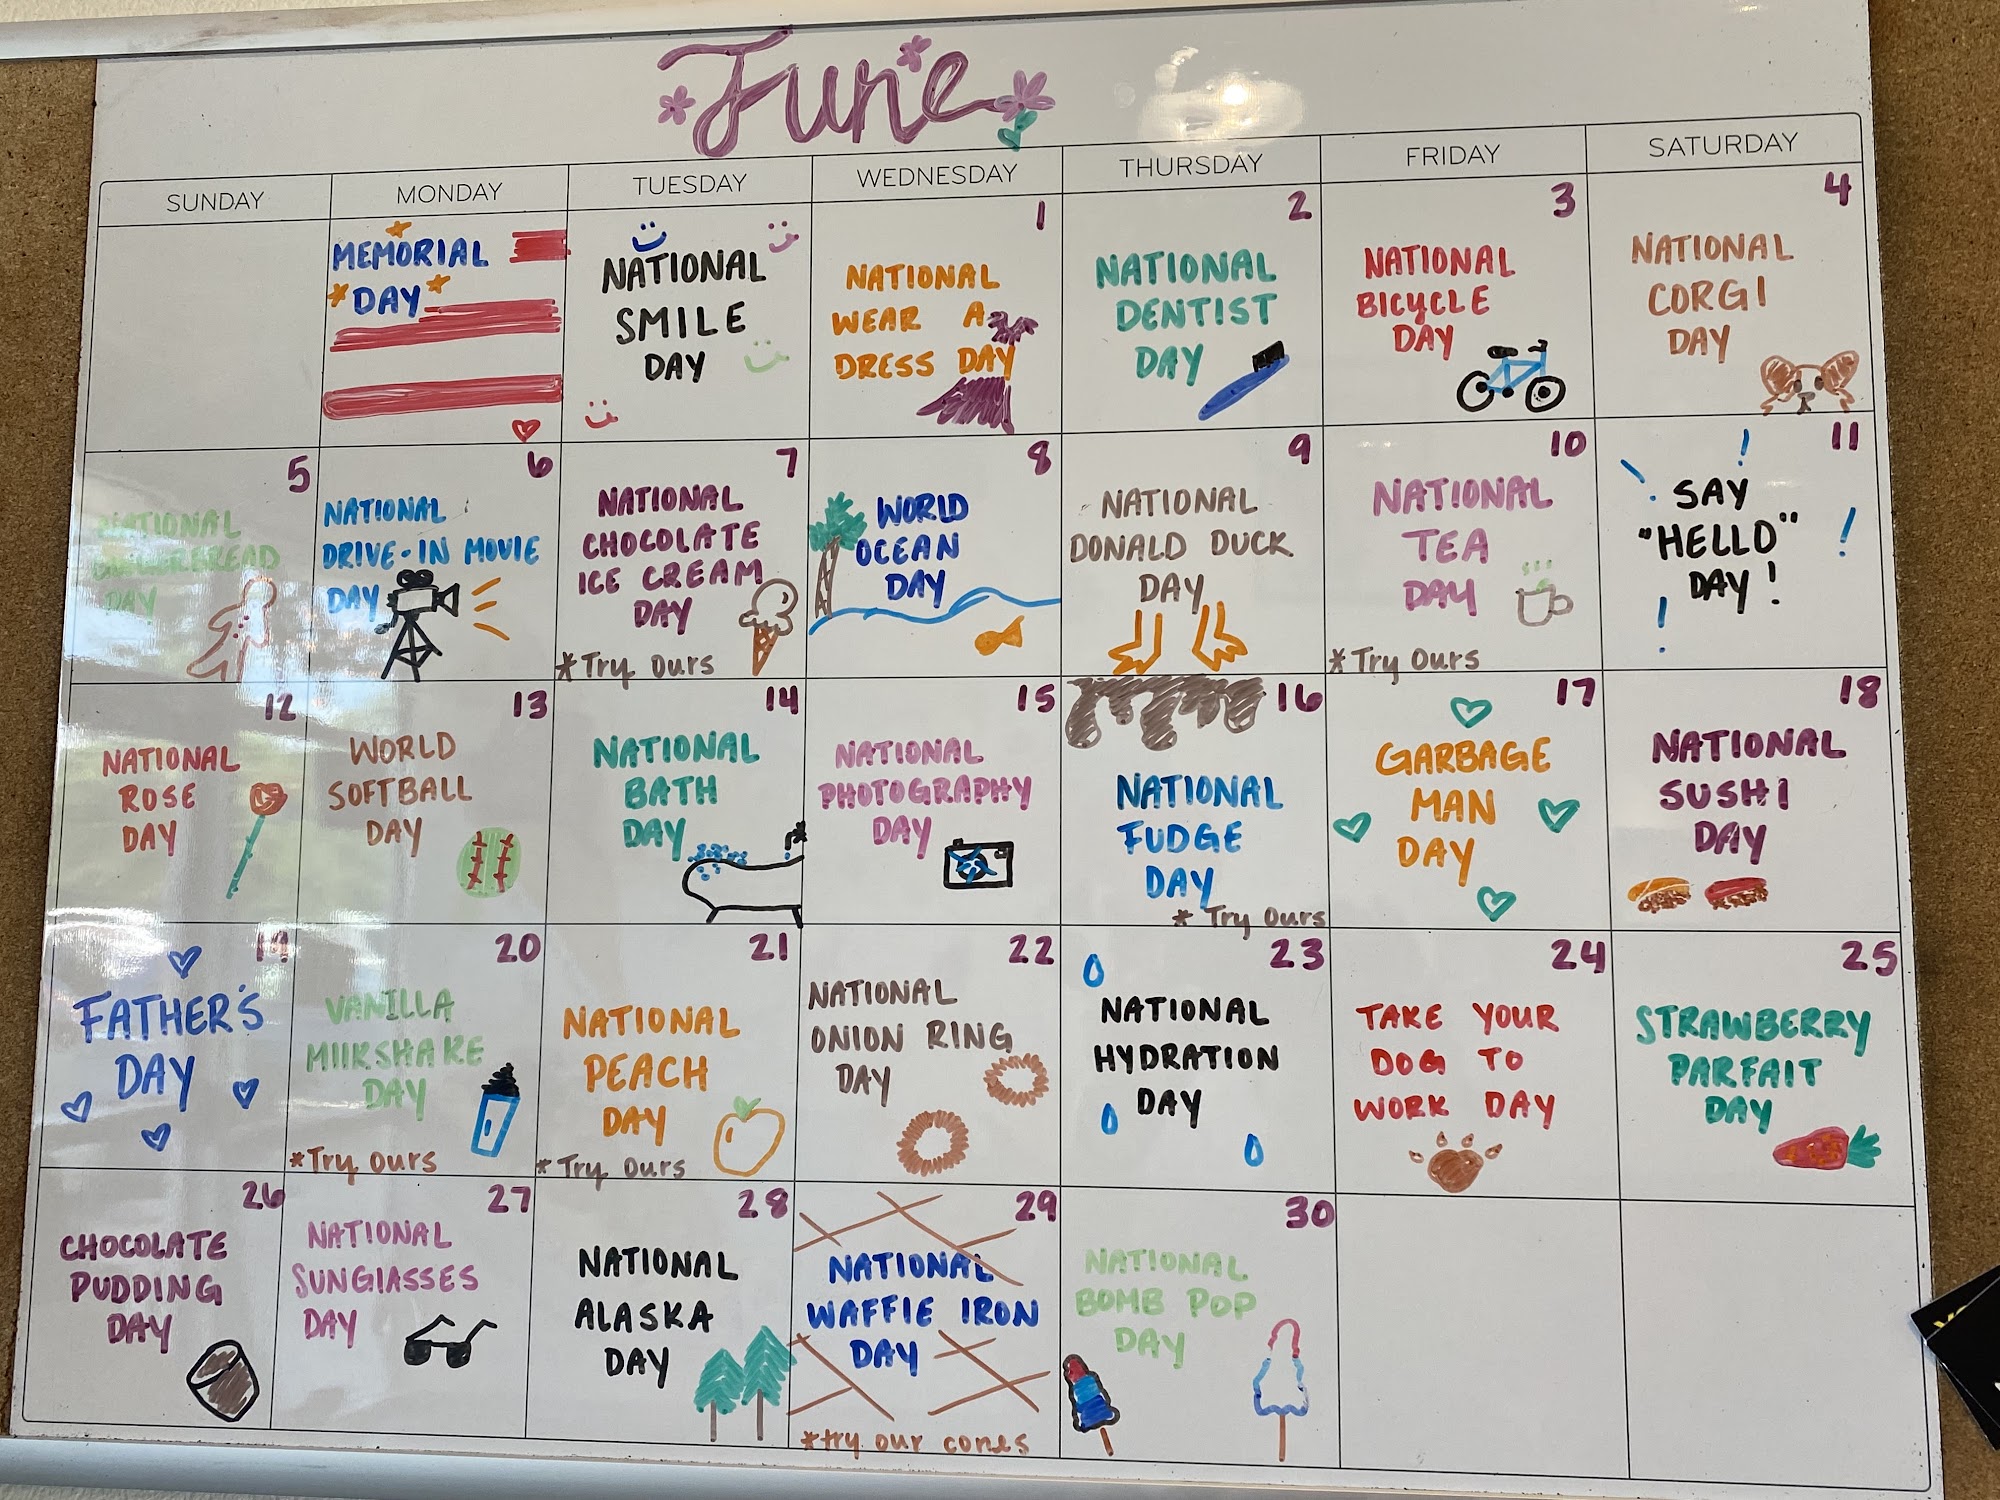 June
SUNDAY
MONDAY
TUESDAY
WEDNESDAY
THURSDAY
FRIDAY
SATURDAY
MEMORIAL
DAY
NATIONAL
SMILE
DAY
1
NATIONAL
WEAR A
DRESS DAY
2
NATIONAL
DENTIST
DAY
3
NATIONAL
BICYCLE
DAY
4
NATIONAL
CORGI
DAY
5
NATIONAL
GINGERBREAD
DAY
6
NATIONAL
DRIVE-IN MOVIE
DAY
7
NATIONAL
CHOCOLATE
ICE CREAM
DAY
*Try ours
8
WORLD
OCEAN
DAY
9
NATIONAL
DONALD DUCK
DAY
10
NATIONAL
TEA
DAY
*Try ours
11
SAY
"HELLO"
DAY!
12
NATIONAL
ROSE
DAY
13
WORLD
SOFTBALL
DAY
14
NATIONAL
BATH
DAY
15
NATIONAL
PHOTOGRAPHY
DAY
16
NATIONAL
FUDGE
DAY
* Try ours
17
GARBAGE
MAN
DAY
18
NATIONAL
SUSHI
DAY
19
FATHER'S
DAY
20
VANILLA
MIlKSHAKE
DAY
*Try ours
21
NATIONAL
PEACH
DAY
*Try ours
22
NATIONAL
ONION RING
DAY
23
NATIONAL
HYDRATION
DAY
24
TAKE YOUR
DOG TO
WORK DAY
25
STRAWBERRY
PARFAIT
DAY
26
CHOCOLATE
PUDDING
DAY
27
NATIONAL
SUNGlASSES
DAY
28
NATIONAL
ALASKA
DAY
29
NATIONAL
WAFFlE IRON
DAY
*try our cones
30
NATIONAL
BOMB POP
DAY